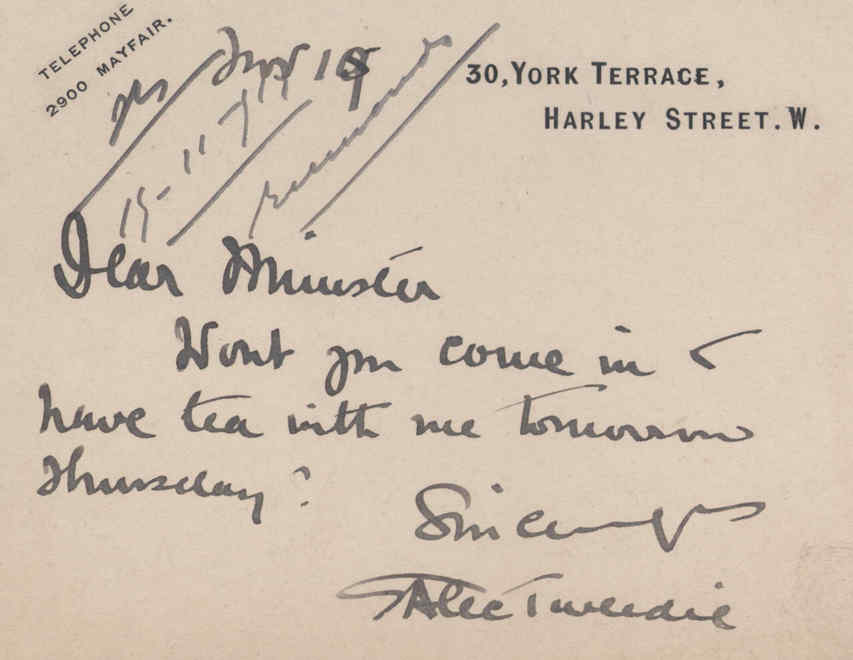 TELEPHONE
2900 MAYFAIR.
30, YORK TERRACE,
HARLEY STREET. W.
Dear Minister
Wont you come in &
have tea with me tomorrow
Thursday?
Sincerely
E Alec Tweedie